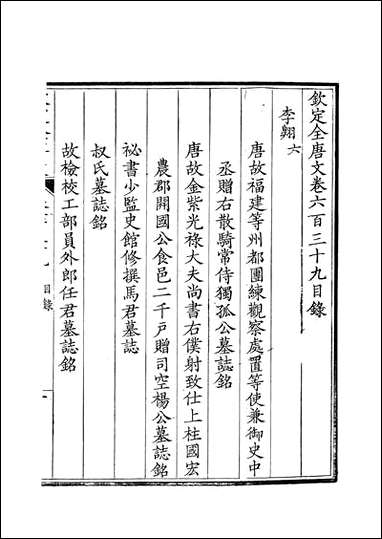 欽定全唐文卷六百三十九目錄
李翺 六
唐故福建等州都團練觀察處置等使兼御史中
丞贈右散騎常侍獨孤公墓誌銘
唐故金紫光祿大夫尚書右僕射致仕上柱國宏
農郡開國公食邑二千戸贈司空楊公墓誌銘
祕書少監史館修撰馬君墓誌
叔氏墓誌銘
故檢校工部員外郎任君墓誌銘
目錄
一